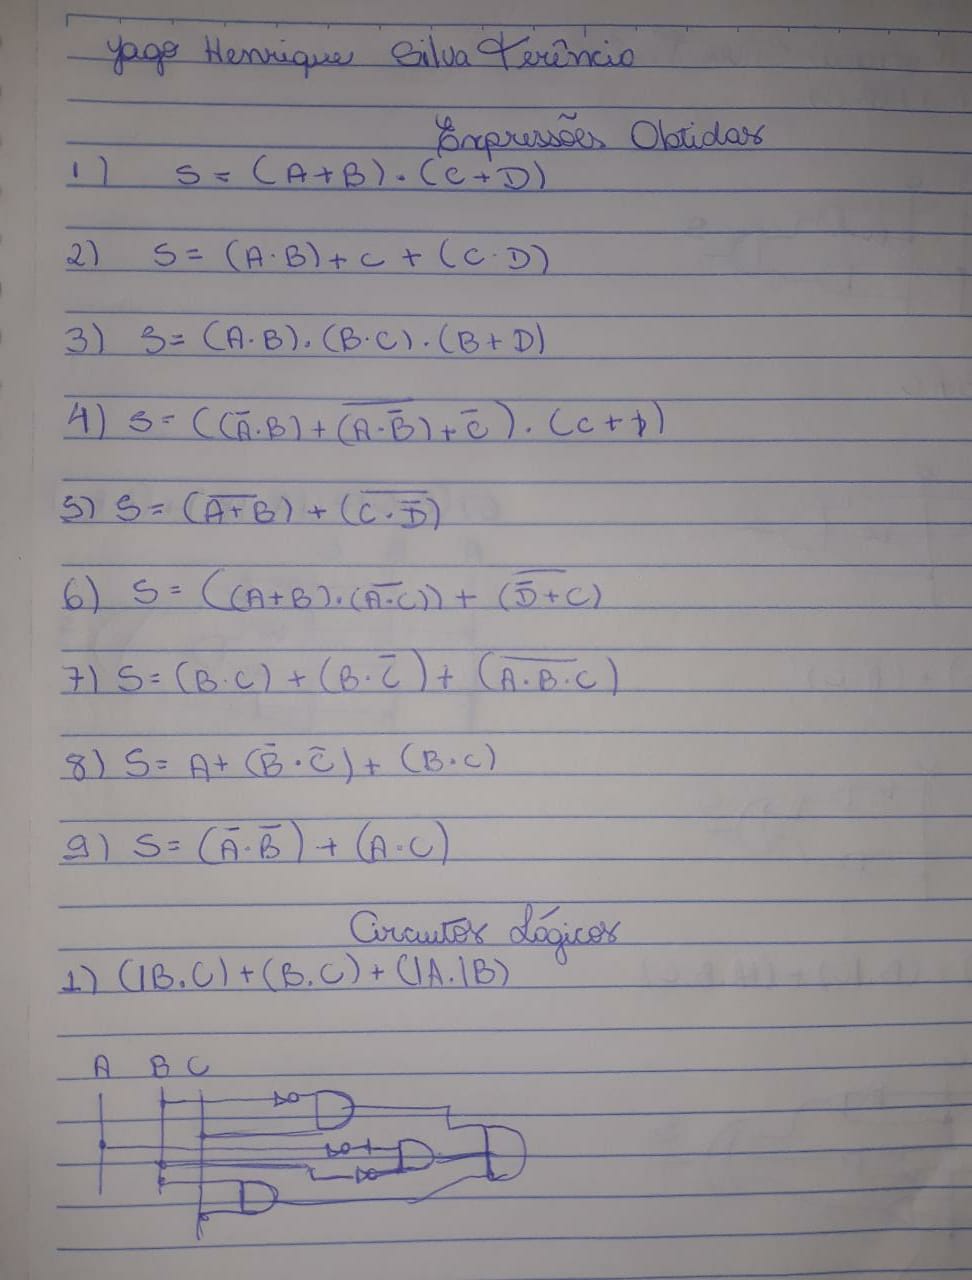 Yago Henrique Silva Terêncio
Expressões Obtidas
1) S = (A+B).(C+D)
2) S = (A·B)+C+(C·D)
3) S = (A·B).(B·C).(B+D)
4) S = ((A̅.B)+(\overline{A·B̅})+C̅).(C+D)
5) S = (\overline{A+B})+(\overline{C·D̅})
6) S = ((A+B).(\overline{A·C}))+(\overline{D̅+C})
7) S = (B·C)+(B·C̅)+(\overline{A·B·C})
8) S = A+(B̅·C̅)+(B·C)
9) S = (A̅·B̅)+(A·C)
Circuitos Lógicos
1) (|B.C)+(B.C)+(|A.|B)
A B C